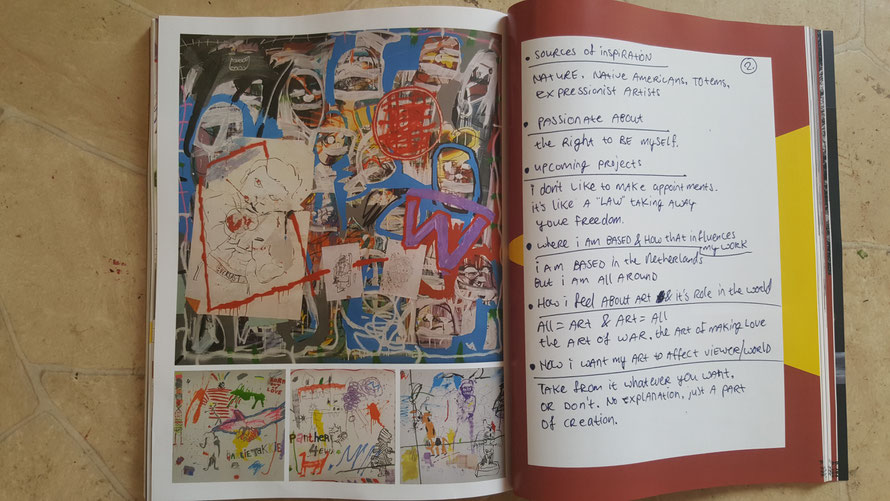 PANTHER
4EW
②
• SOURCES of inspiRATION
NATURE. NATive AMERICANS. TOTems,
expressionist ARTists
• PASSIONATE ABOUT
the Right to BE myself.
• upcoming projects
i don't like to make appointments.
it's like A "LAW" TAKING AWAY
your freedom.
• where i AM BASED & HOW that influences
my work
i AM BASED in the Netherlands
But i AM All AROUND
• How i feel ABOUT ART & it's Role in the world
All = ART & ART = All
the ART of WAR. the ART of MAKING LOVE
• How i want my ART to Affect VIEWER/WORLD
TAKE from it whatever you want.
OR Don't. No explanation, just A PART
of CREATION.